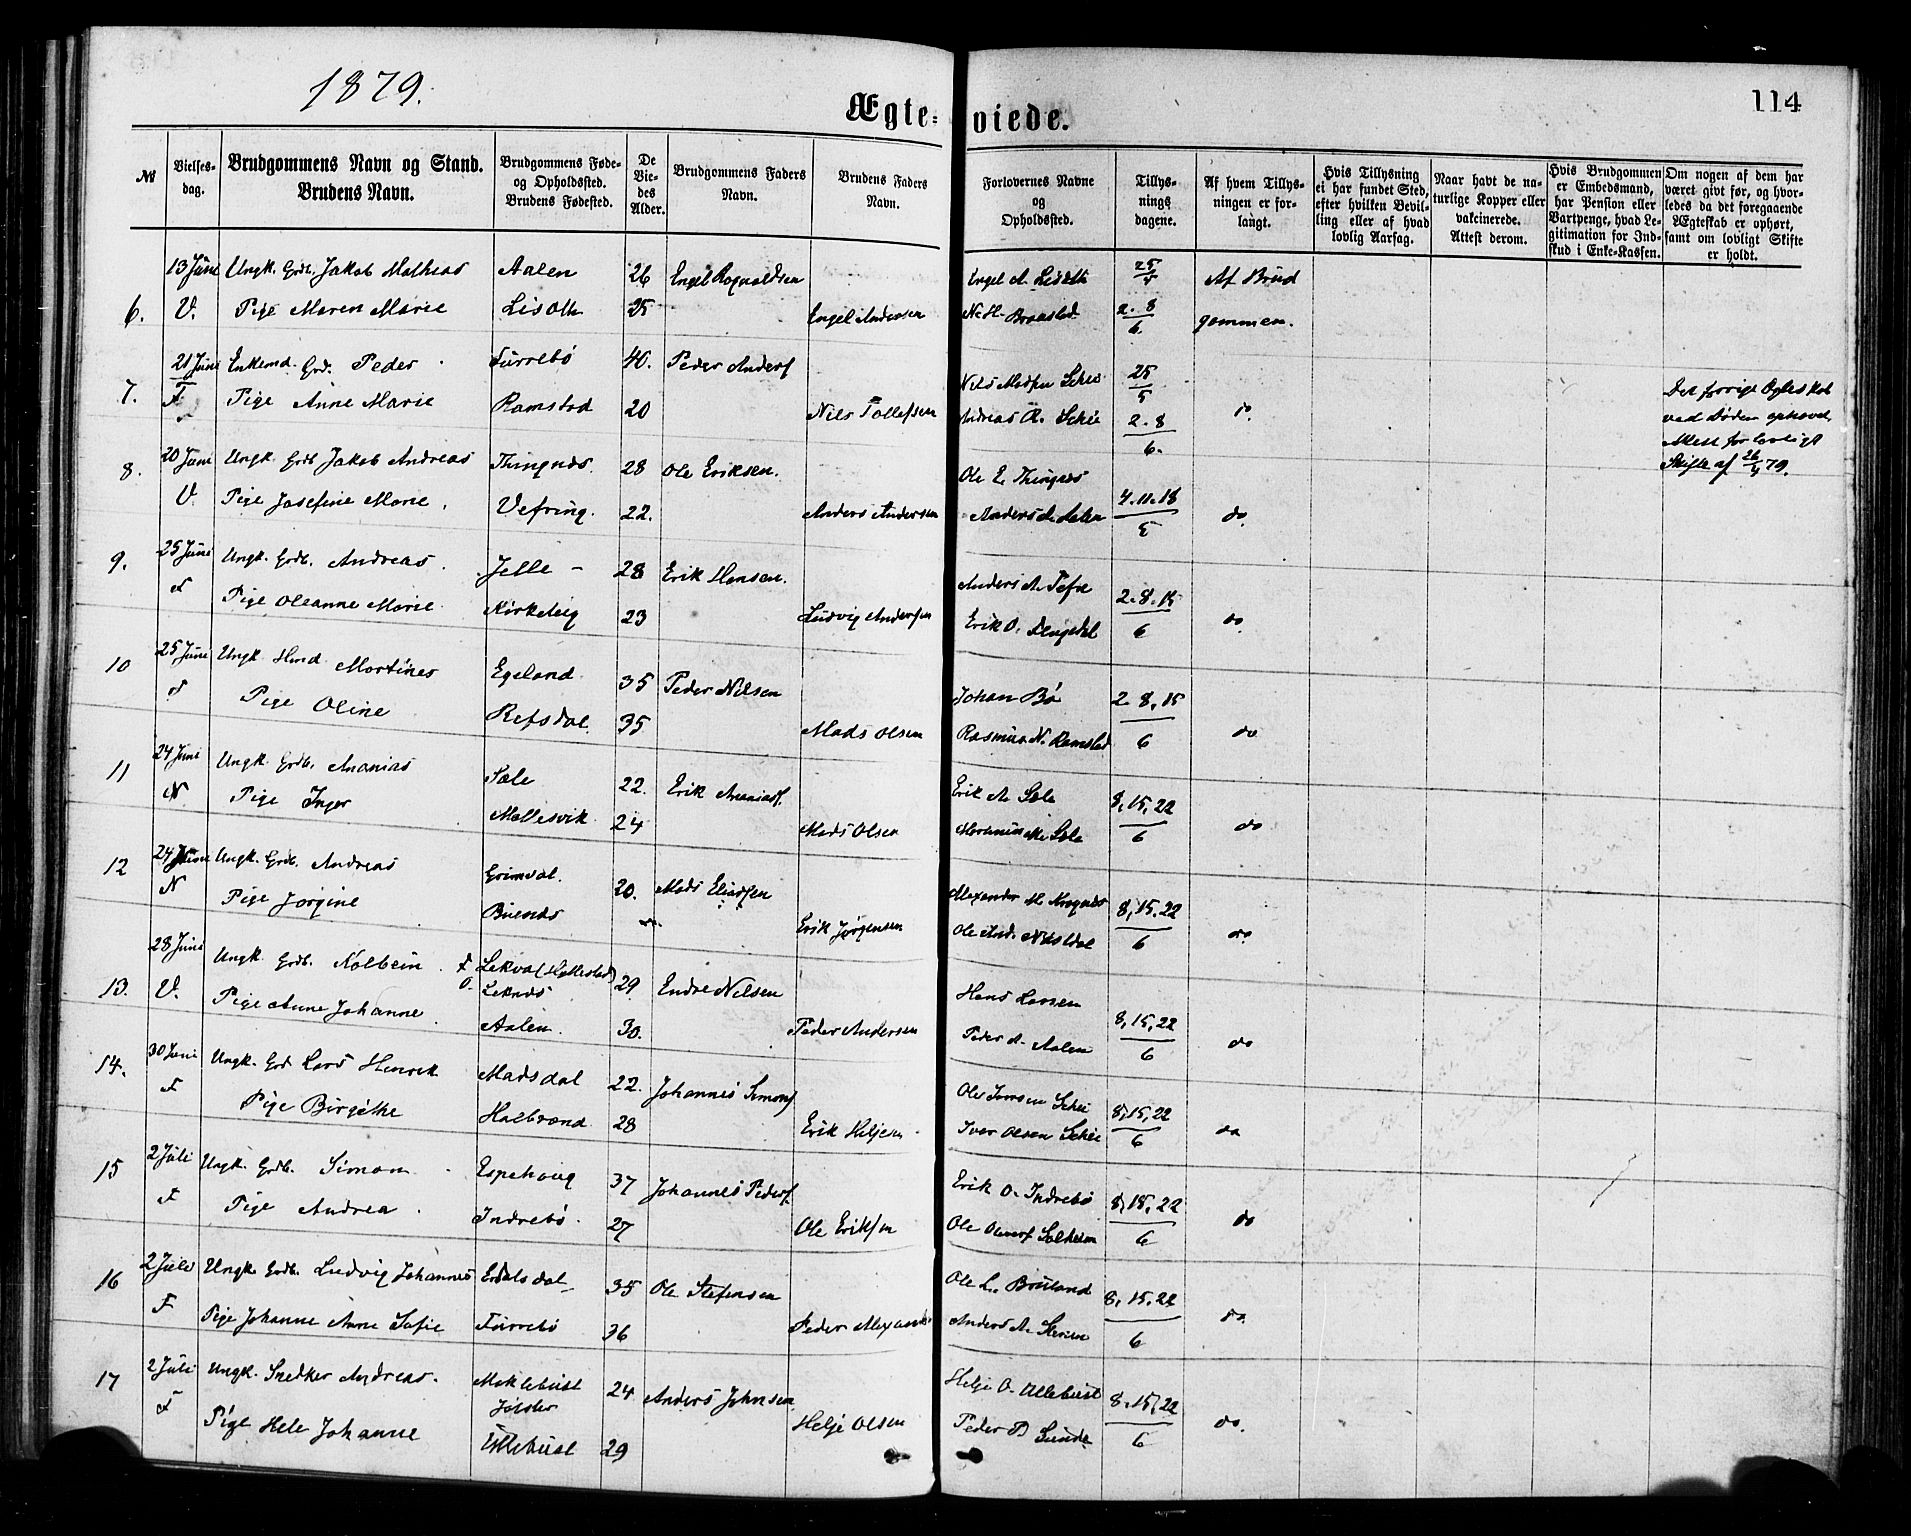 1879.
114
Ægte-viede.
№
Vielses-dag.
Brudgommens Navn og Stand. Brudens Navn.
Brudgommens Føde- og Opholdssted. Brudens Fødested.
De Vie-des Alder.
Brudgommens Faders Navn.
Brudens Faders Navn.
Forlovernes Navne og Opholdssted.
Tillys-nings dagene.
Af hvem Tillys-ningen er for-langt.
Hvis Tillysning ei har fundet Sted, efter hvilken Bevil-ling eller af hvad lovlig Aarsag.
Naar havt de na-turlige Kopper eller vakcinerede. Attest derom.
Hvis Brudgommen er Embedsmand, har Pension eller Vartpenge, hvad Le-gitimation for Ind-skud i Enke-Kassen.
Om nogen af dem har været givt før, og hvor-ledes da det foregaaende Ægteskab er ophørt, samt om lovligt Skifte er holdt.
13 Juni Ungk. Grdb. Jakob Mathias Aalen 26 Engel Rognaldsen Engel A. 25/5 Af Brud
6. V. Pige Maren Marie 25 Engel Andersen N. H. 2. 8/6 gommen.
21 Juni Enkemd. Grd. Peder Furrebö 40. Peder Anders. Nils Madsen Schei 25/5
7. F Pige Anne Marie Ramstad 20 Nils Tollefsen Andreas R. Schei 2. 8/6. do. Det forrige Egteskab ved Döden ophævet. Attest for lovligt Skifte af 26/4 79.
8. 20 Juni Ungk. Grdb. Jakob Andreas Thingnæs. 28 Ole Eriksen. Ole E. Thingnæs
V. Pige Josefine Marie. Vefring. 22. Anders Andersen Anders A. 4. 11. 18/5 do
9. 25 Juni Ungk. Grdb. Andreas. Jelle - 28 Erik Hansen. Anders A. Tefre
F Pige Oleanne Marie Kirkeleig 23 Ludvig Andersen Erik O. Dengedal 2. 8. 15/6 do
10 25 Juni Ungk. Hmd Martines Egeland 35 Peder Nilsen Johan Bö 2. 8, 15
F Pige Oline Refsdal. 35 Mads Olsen Rasmus N. Ramstad 6 do
11 24 Juni Ungk. Grdb. Ananias Sæle 22. Erik Ananias. Erik A. Sæle 8, 15, 22
N Pige Inger Mallesvik 24 Mads Olsen Sæle 6 do
12 24 Juni Ungk. Grdb. Andreas Grimdal. 20. Mads Eliassen Alexander M. 8, 15, 22
N Pige Jörgine Buenæs do. Erik Jörgensen Ole And. 6 do
28 Juni Ungk. Grdb. Kolbein F. Lekva (Hallestad) 29 Endre Nilsen Hans Larsen
13. V. Pige Anne Johanne O. Leknæs
Aalen. 30. Peder Andersen Peder A. Aalen 8, 15, 22/6 do
14. 30 Juni Ungk. Grd. Lars Henrik Madsdal 22. Johannes Simons. Ole Schei 8, 15, 22
F Pige Birgithe Halbrand 28 Erik Heljesen Iver Olsen Schei 6 do
15 2 Juli Ungk. Grdb. Simon Espehoug 37 Johannes Peders. Erik O. Indrebö 8, 15, 22
F Pige Andrea Indrebö 27 Ole Eriksen Ole Solheim 6 do
16 2 Juli Ungk. Grdb. Ludvig Johannes Erdalsdal 35 Ole Stefensen Ole L. Bruland 8, 15, 22
F Pige Johanne Anne Sofie Furrebö 36 Peder Anders A. 6 do.
17 2 Juli Ungk. Snedker Andreas. Moklebust Jölster 24 Anders Johnsen Helje O. Ullebust 8. 15, 22
F Pige Hele Johanne Ullebust 29 Helje Olsen Peder P. Sunde 6 do.